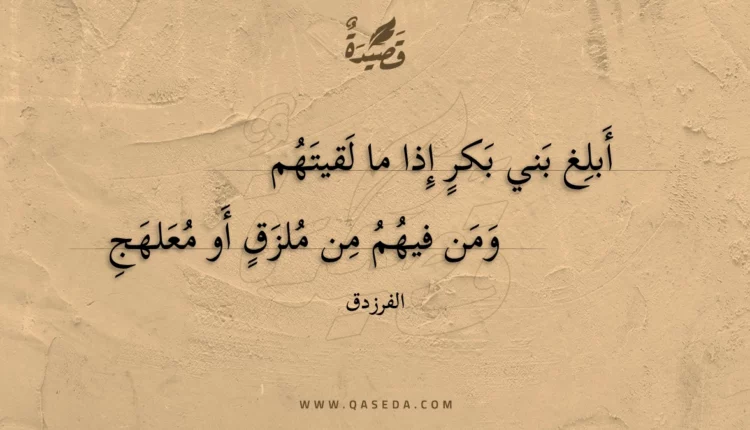 قَصِيدَةٌ
أَبلِغ بَني بَكرٍ إِذا ما لَقيتَهُم
وَمَن فيهُمُ مِن مُلزَقٍ أَو مُعَلهَجِ
الفرزدق
WWW.QASEDA.COM